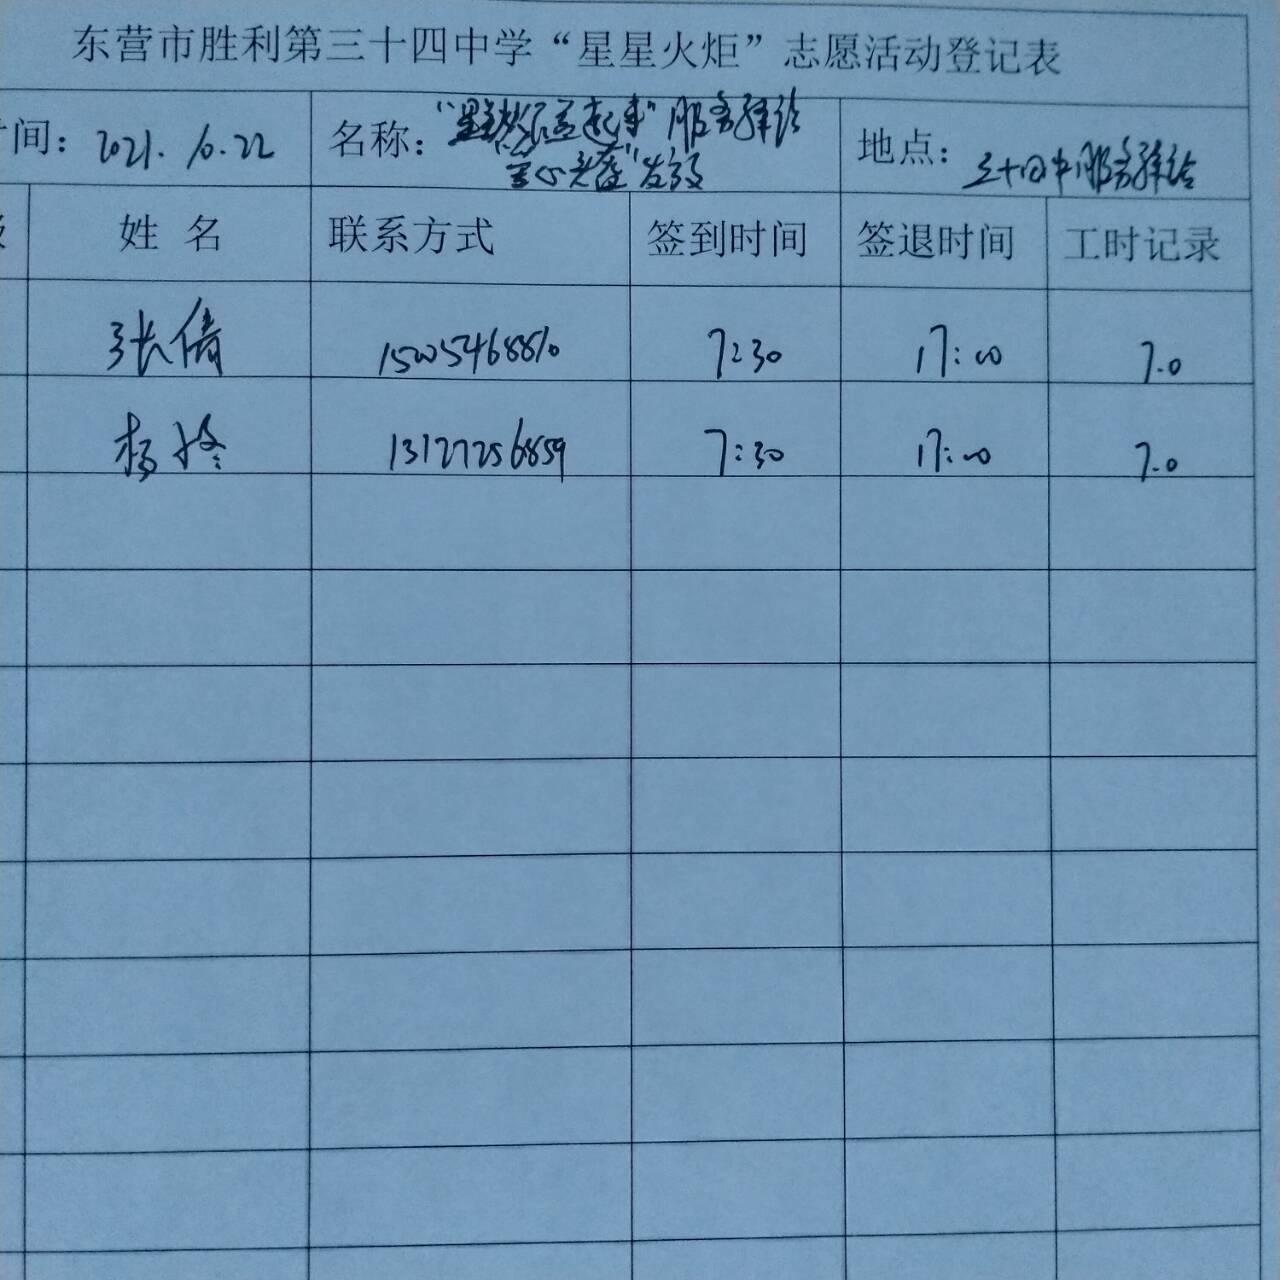 东营市胜利第三十四中学“星星火炬”志愿活动登记表
时间：2021.10.22
名称： 服务驿站
地点：三十四中服务驿站
姓名 联系方式 签到时间 签退时间 工时记录
张倩 7:30 17:00 7.0
杨 13127256859 7:30 17:00 7.0